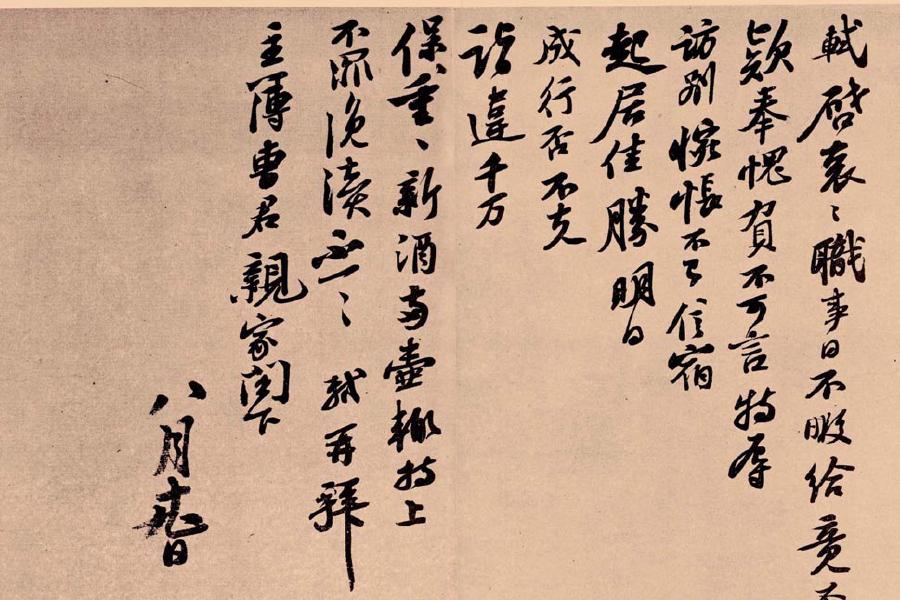 軾啓袞〻職事日不暇給竟不
款奉愧負不可言特辱
訪別惋悵不已信宿
起居佳勝明日
成行否不克
詣違千万
保重〻新酒兩壺輒持上
不罪浼瀆不一〻軾再拜
主簿曹君親家閣下
八月日